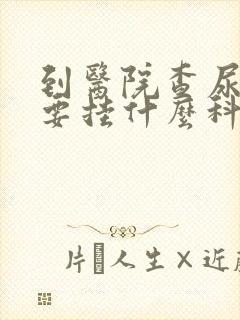 到醫院查尿
要挂什麼科
片人生×近